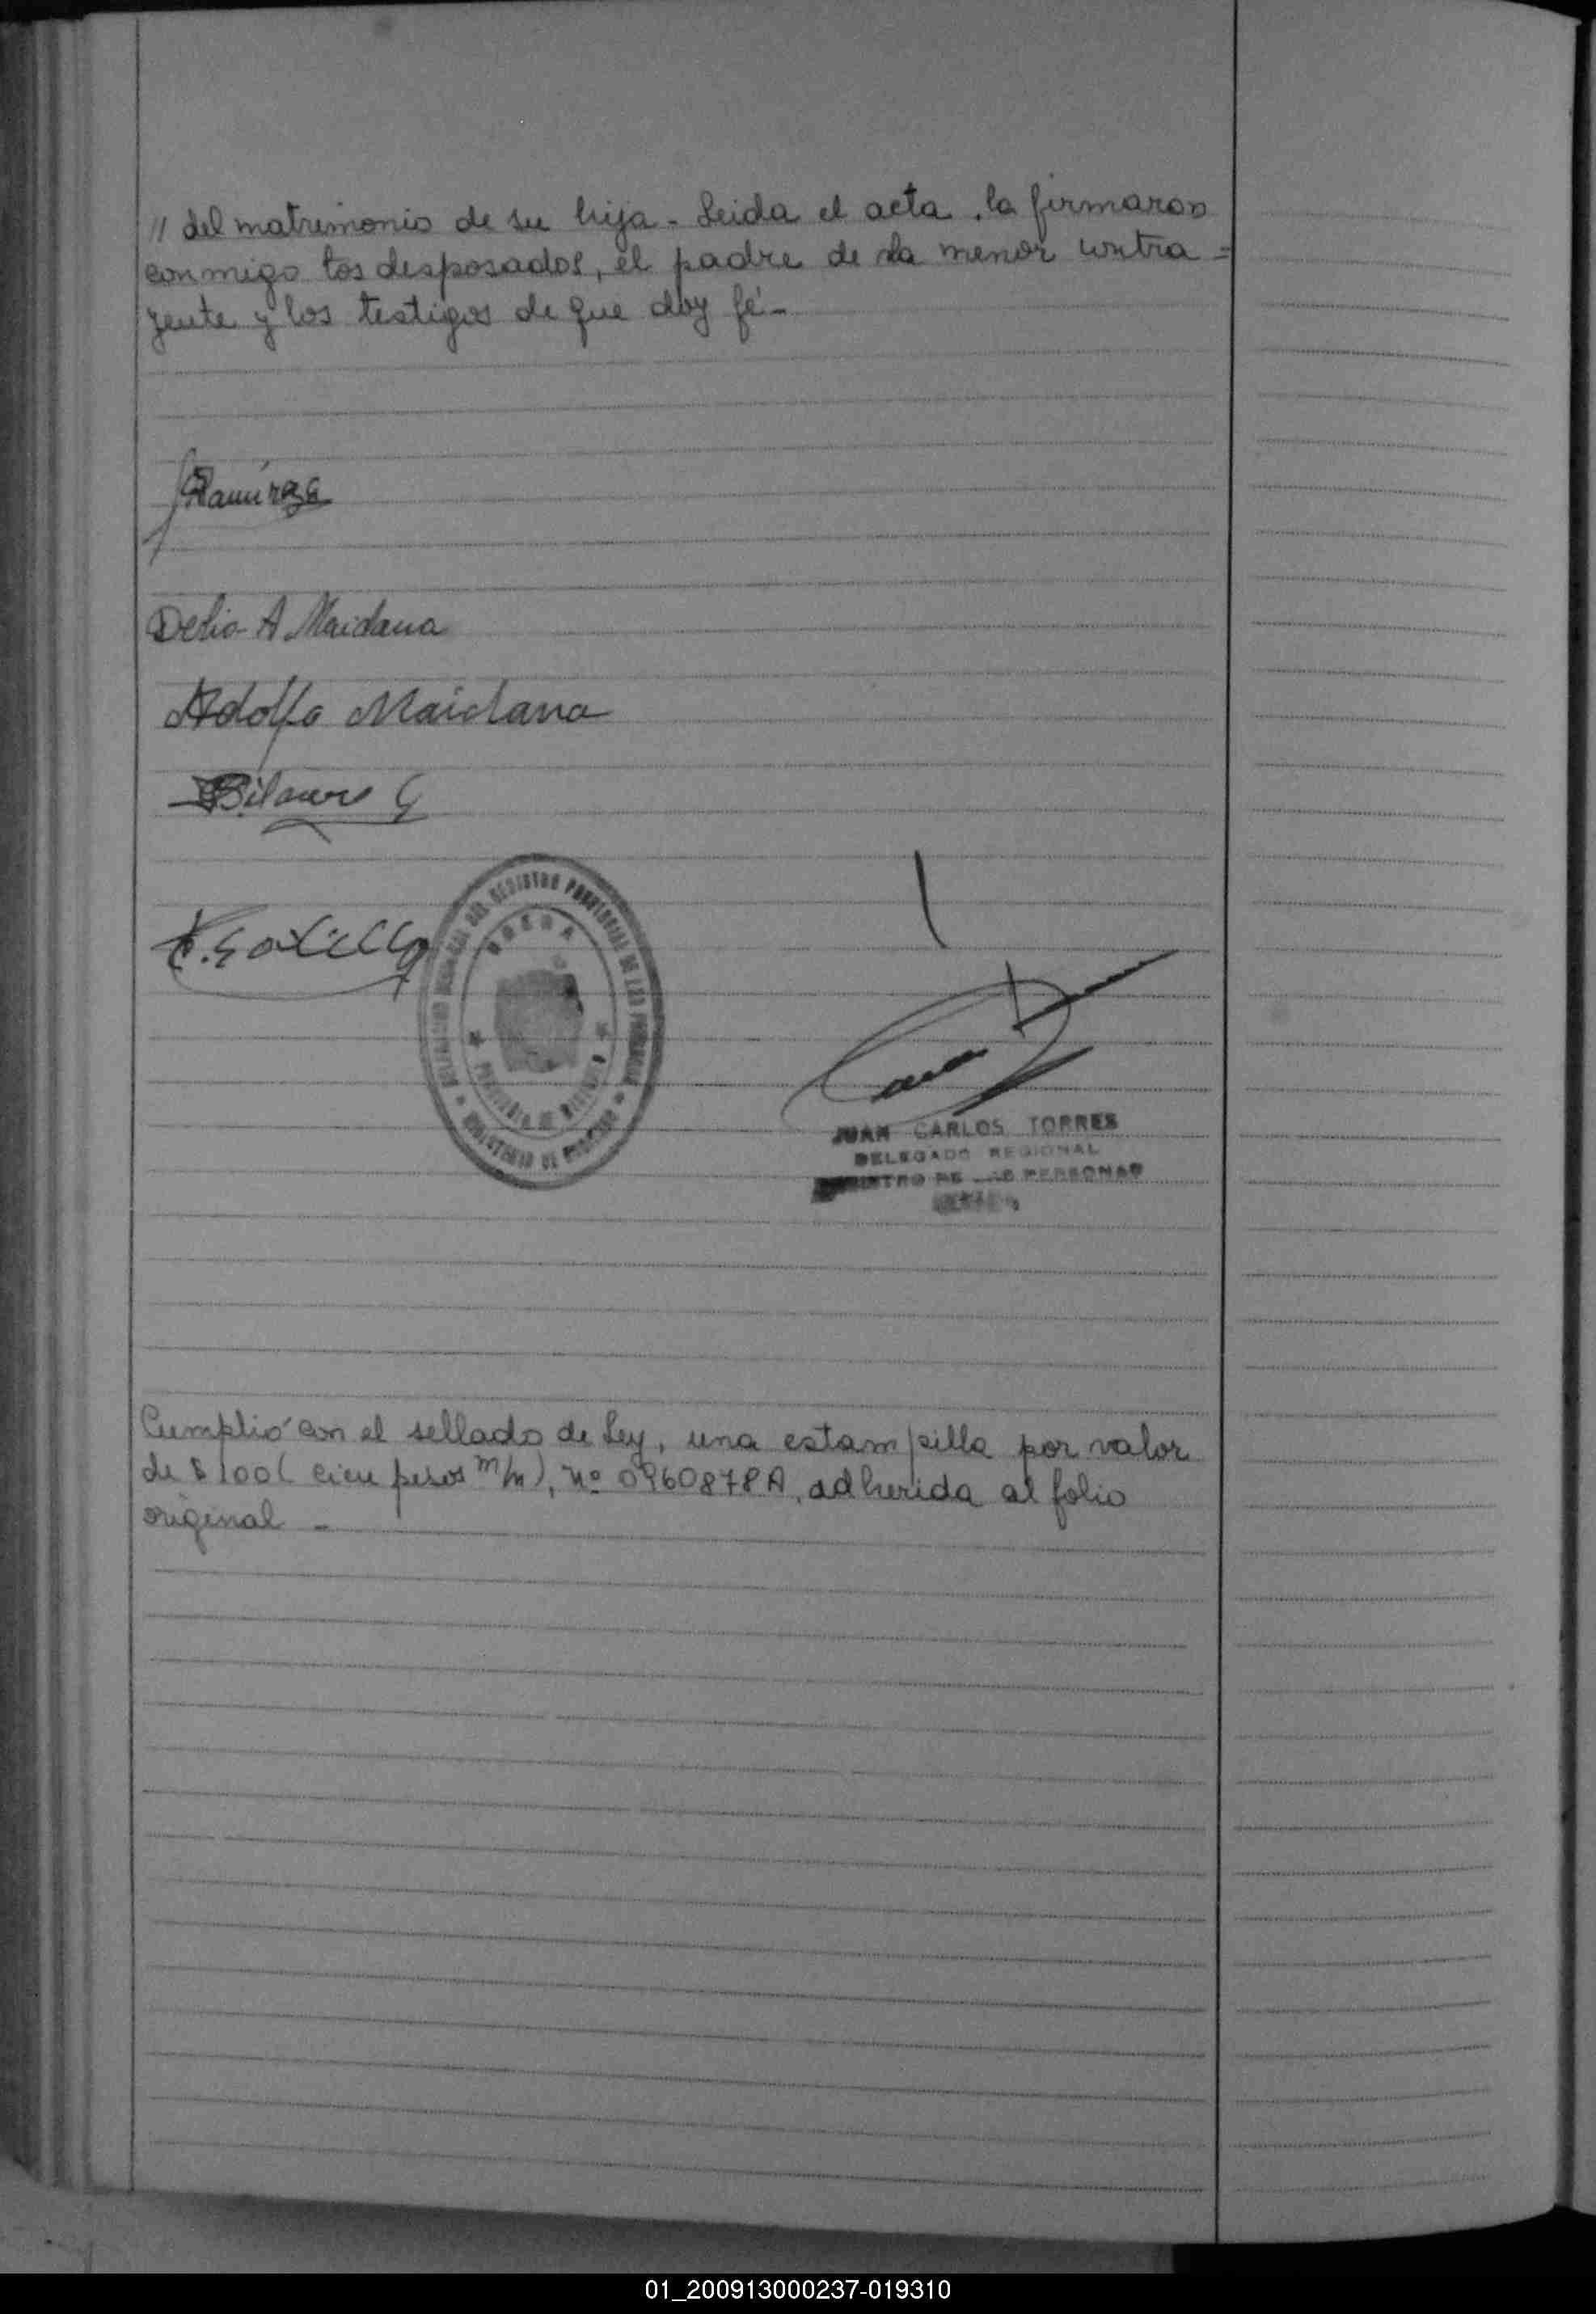 // del matrimonio de su hija - Leida el acta, la firmaron
conmigo los desposados, el padre de la menor contra =
yente y los testigos de que doy fé -
Ramirez
Delio A Maidana
Adolfo Maidana
G
OBERA
PROVINCIA DE MISIONES
REGISTRO PROVINCIAL DE LAS PERSONAS
MINISTERIO DE GOBIERNO
JUAN CARLOS TORRES
DELEGADO REGIONAL
REGISTRO DE LAS PERSONAS
Cumplió con el sellado de Ley, una estampilla por valor
de $ 100 ( cien pesos m/n), Nº 0960878A, adherida al folio
original -
01_200913000237-019310